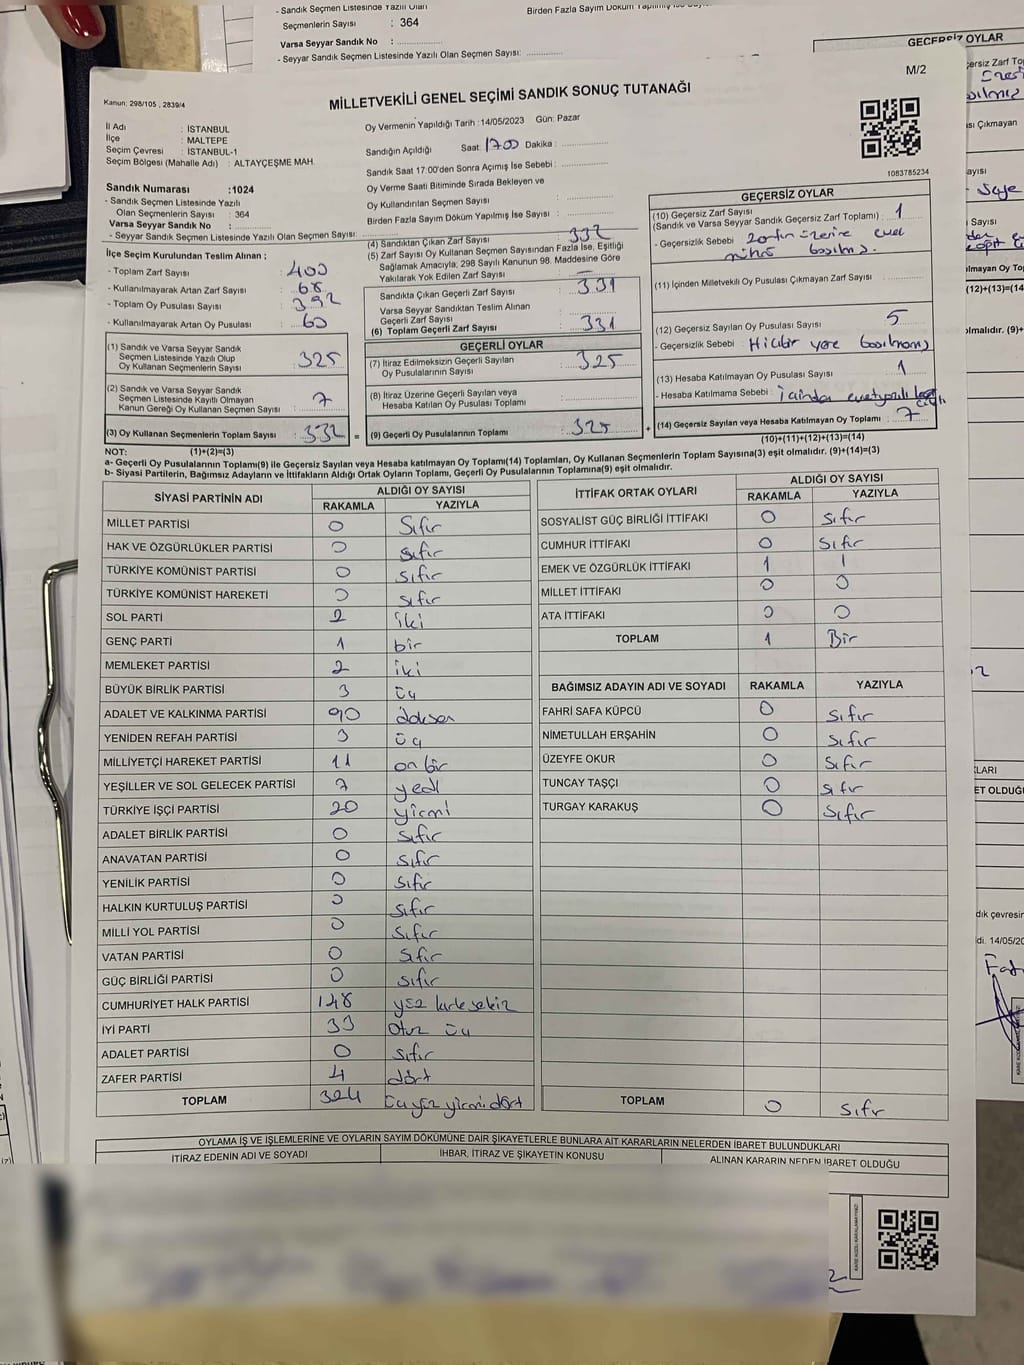 - Sandık Seçmen Listesinde Yazılı Olan
Seçmenlerin Sayısı : 364
Varsa Seyyar Sandık No :
- Seyyar Sandık Seçmen Listesinde Yazılı Olan Seçmen Sayısı:
Birden Fazla Sayım Döküm Yapılmış
GEÇERSİZ OYLAR
M/2
Kanun: 298/105 , 2839/4
MİLLETVEKİLİ GENEL SEÇİMİ SANDIK SONUÇ TUTANAĞI
İl Adı : İSTANBUL
İlçe : MALTEPE
Seçim Çevresi : İSTANBUL-1
Seçim Bölgesi (Mahalle Adı) : ALTAYÇEŞME MAH.
Sandık Numarası :1024
- Sandık Seçmen Listesinde Yazılı
Olan Seçmenlerin Sayısı : 364
Varsa Seyyar Sandık No :
- Seyyar Sandık Seçmen Listesinde Yazılı Olan Seçmen Sayısı:
Oy Vermenin Yapıldığı Tarih :14/05/2023 Gün: Pazar
Sandığın Açıldığı Saat 1700 Dakika :
Sandık Saat 17:00'den Sonra Açımış İse Sebebi :
Oy Verme Saati Bitiminde Sırada Bekleyen ve
Oy Kullandırılan Seçmen Sayısı :
Birden Fazla Sayım Döküm Yapılmış İse Sayısı :
1083785234
İlçe Seçim Kurulundan Teslim Alınan ;
- Toplam Zarf Sayısı : 400
- Kullanılmayarak Artan Zarf Sayısı : 68
- Toplam Oy Pusulası Sayısı : 392
- Kullanılmayarak Artan Oy Pusulası : 60
(1) Sandık ve Varsa Seyyar Sandık
Seçmen Listesinde Yazılı Olup
Oy Kullanan Seçmenlerin Sayısı : 325
(2) Sandık ve Varsa Seyyar Sandık
Seçmen Listesinde Kayıtlı Olmayan
Kanun Gereği Oy Kullanan Seçmen Sayısı : 7
(3) Oy Kullanan Seçmenlerin Toplam Sayısı : 332 =
(1)+(2)=(3)
(4) Sandıktan Çıkan Zarf Sayısı : 332
(5) Zarf Sayısı Oy Kullanan Seçmen Sayısından Fazla İse, Eşitliği
Sağlamak Amacıyla, 298 Sayılı Kanunun 98. Maddesine Göre
Yakılarak Yok Edilen Zarf Sayısı : —
Sandıkta Çıkan Geçerli Zarf Sayısı : 331
Varsa Seyyar Sandıktan Teslim Alınan
Geçerli Zarf Sayısı
(6) Toplam Geçerli Zarf Sayısı : 331
GEÇERLİ OYLAR
(7) İtiraz Edilmeksizin Geçerli Sayılan
Oy Pusulalarının Sayısı : 325
(8) İtiraz Üzerine Geçerli Sayılan veya
Hesaba Katılan Oy Pusulası Toplamı :
(9) Geçerli Oy Pusulalarının Toplamı : 325 +
GEÇERSİZ OYLAR
(10) Geçersiz Zarf Sayısı
(Sandık ve Varsa Seyyar Sandık Geçersiz Zarf Toplamı) : 1
- Geçersizlik Sebebi : zarfın üzerine evet
mührü basılmış.
(11) İçinden Milletvekili Oy Pusulası Çıkmayan Zarf Sayısı :
(12) Geçersiz Sayılan Oy Pusulası Sayısı : 5
- Geçersizlik Sebebi : Hiçbir yere basılmamış
(13) Hesaba Katılmayan Oy Pusulası Sayısı : 1
- Hesaba Katılmama Sebebi : içinden evet yazılı
(14) Geçersiz Sayılan veya Hesaba Katılmayan Oy Toplamı : 7
(10)+(11)+(12)+(13)=(14)
NOT:
a- Geçerli Oy Pusulalarının Toplamı(9) ile Geçersiz Sayılan veya Hesaba katılmayan Oy Toplamı(14) Toplamları, Oy Kullanan Seçmenlerin Toplam Sayısına(3) eşit olmalıdır. (9)+(14)=(3)
b- Siyasi Partilerin, Bağımsız Adayların ve İttifakların Aldığı Ortak Oyların Toplamı, Geçerli Oy Pusulalarının Toplamına(9) eşit olmalıdır.
SİYASİ PARTİNİN ADI ALDIĞI OY SAYISI
RAKAMLA YAZIYLA
MİLLET PARTİSİ 0 Sıfır
HAK VE ÖZGÜRLÜKLER PARTİSİ 0 sıfır
TÜRKİYE KOMÜNİST PARTİSİ 0 sıfır
TÜRKİYE KOMÜNİST HAREKETİ 0 sıfır
SOL PARTİ 2 iki
GENÇ PARTİ 1 bir
MEMLEKET PARTİSİ 2 iki
BÜYÜK BİRLİK PARTİSİ 3 üç
ADALET VE KALKINMA PARTİSİ 90 doksan
YENİDEN REFAH PARTİSİ 3 üç
MİLLİYETÇİ HAREKET PARTİSİ 11 on bir
YEŞİLLER VE SOL GELECEK PARTİSİ 7 yedi
TÜRKİYE İŞÇİ PARTİSİ 20 yirmi
ADALET BİRLİK PARTİSİ 0 sıfır
ANAVATAN PARTİSİ 0 sıfır
YENİLİK PARTİSİ 0 sıfır
HALKIN KURTULUŞ PARTİSİ 0 sıfır
MİLLİ YOL PARTİSİ 0 sıfır
VATAN PARTİSİ 0 sıfır
GÜÇ BİRLİĞİ PARTİSİ 0 sıfır
CUMHURİYET HALK PARTİSİ 148 yüz kırksekiz
İYİ PARTİ 33 Otuz üç
ADALET PARTİSİ 0 sıfır
ZAFER PARTİSİ 4 dört
TOPLAM 324 üçyüz yirmidört
İTTİFAK ORTAK OYLARI ALDIĞI OY SAYISI
RAKAMLA YAZIYLA
SOSYALİST GÜÇ BİRLİĞİ İTTİFAKI 0 sıfır
CUMHUR İTTİFAKI 0 sıfır
EMEK VE ÖZGÜRLÜK İTTİFAKI 1 1
MİLLET İTTİFAKI 0 0
ATA İTTİFAKI 0 0
TOPLAM 1 Bir
BAĞIMSIZ ADAYIN ADI VE SOYADI RAKAMLA YAZIYLA
FAHRİ SAFA KÜPCÜ 0 sıfır
NİMETULLAH ERŞAHİN 0 sıfır
ÜZEYFE OKUR 0 sıfır
TUNCAY TAŞÇI 0 sıfır
TURGAY KARAKUŞ 0 sıfır
TOPLAM 0 sıfır
OYLAMA İŞ VE İŞLEMLERİNE VE OYLARIN SAYIM DÖKÜMÜNE DAİR ŞİKAYETLERLE BUNLARA AİT KARARLARIN NELERDEN İBARET BULUNDUKLARI
İTİRAZ EDENİN ADI VE SOYADI İHBAR, İTİRAZ VE ŞİKAYETİN KONUSU ALINAN KARARIN NEDEN İBARET OLDUĞU
KARE KODU KARALAMAYINIZ!